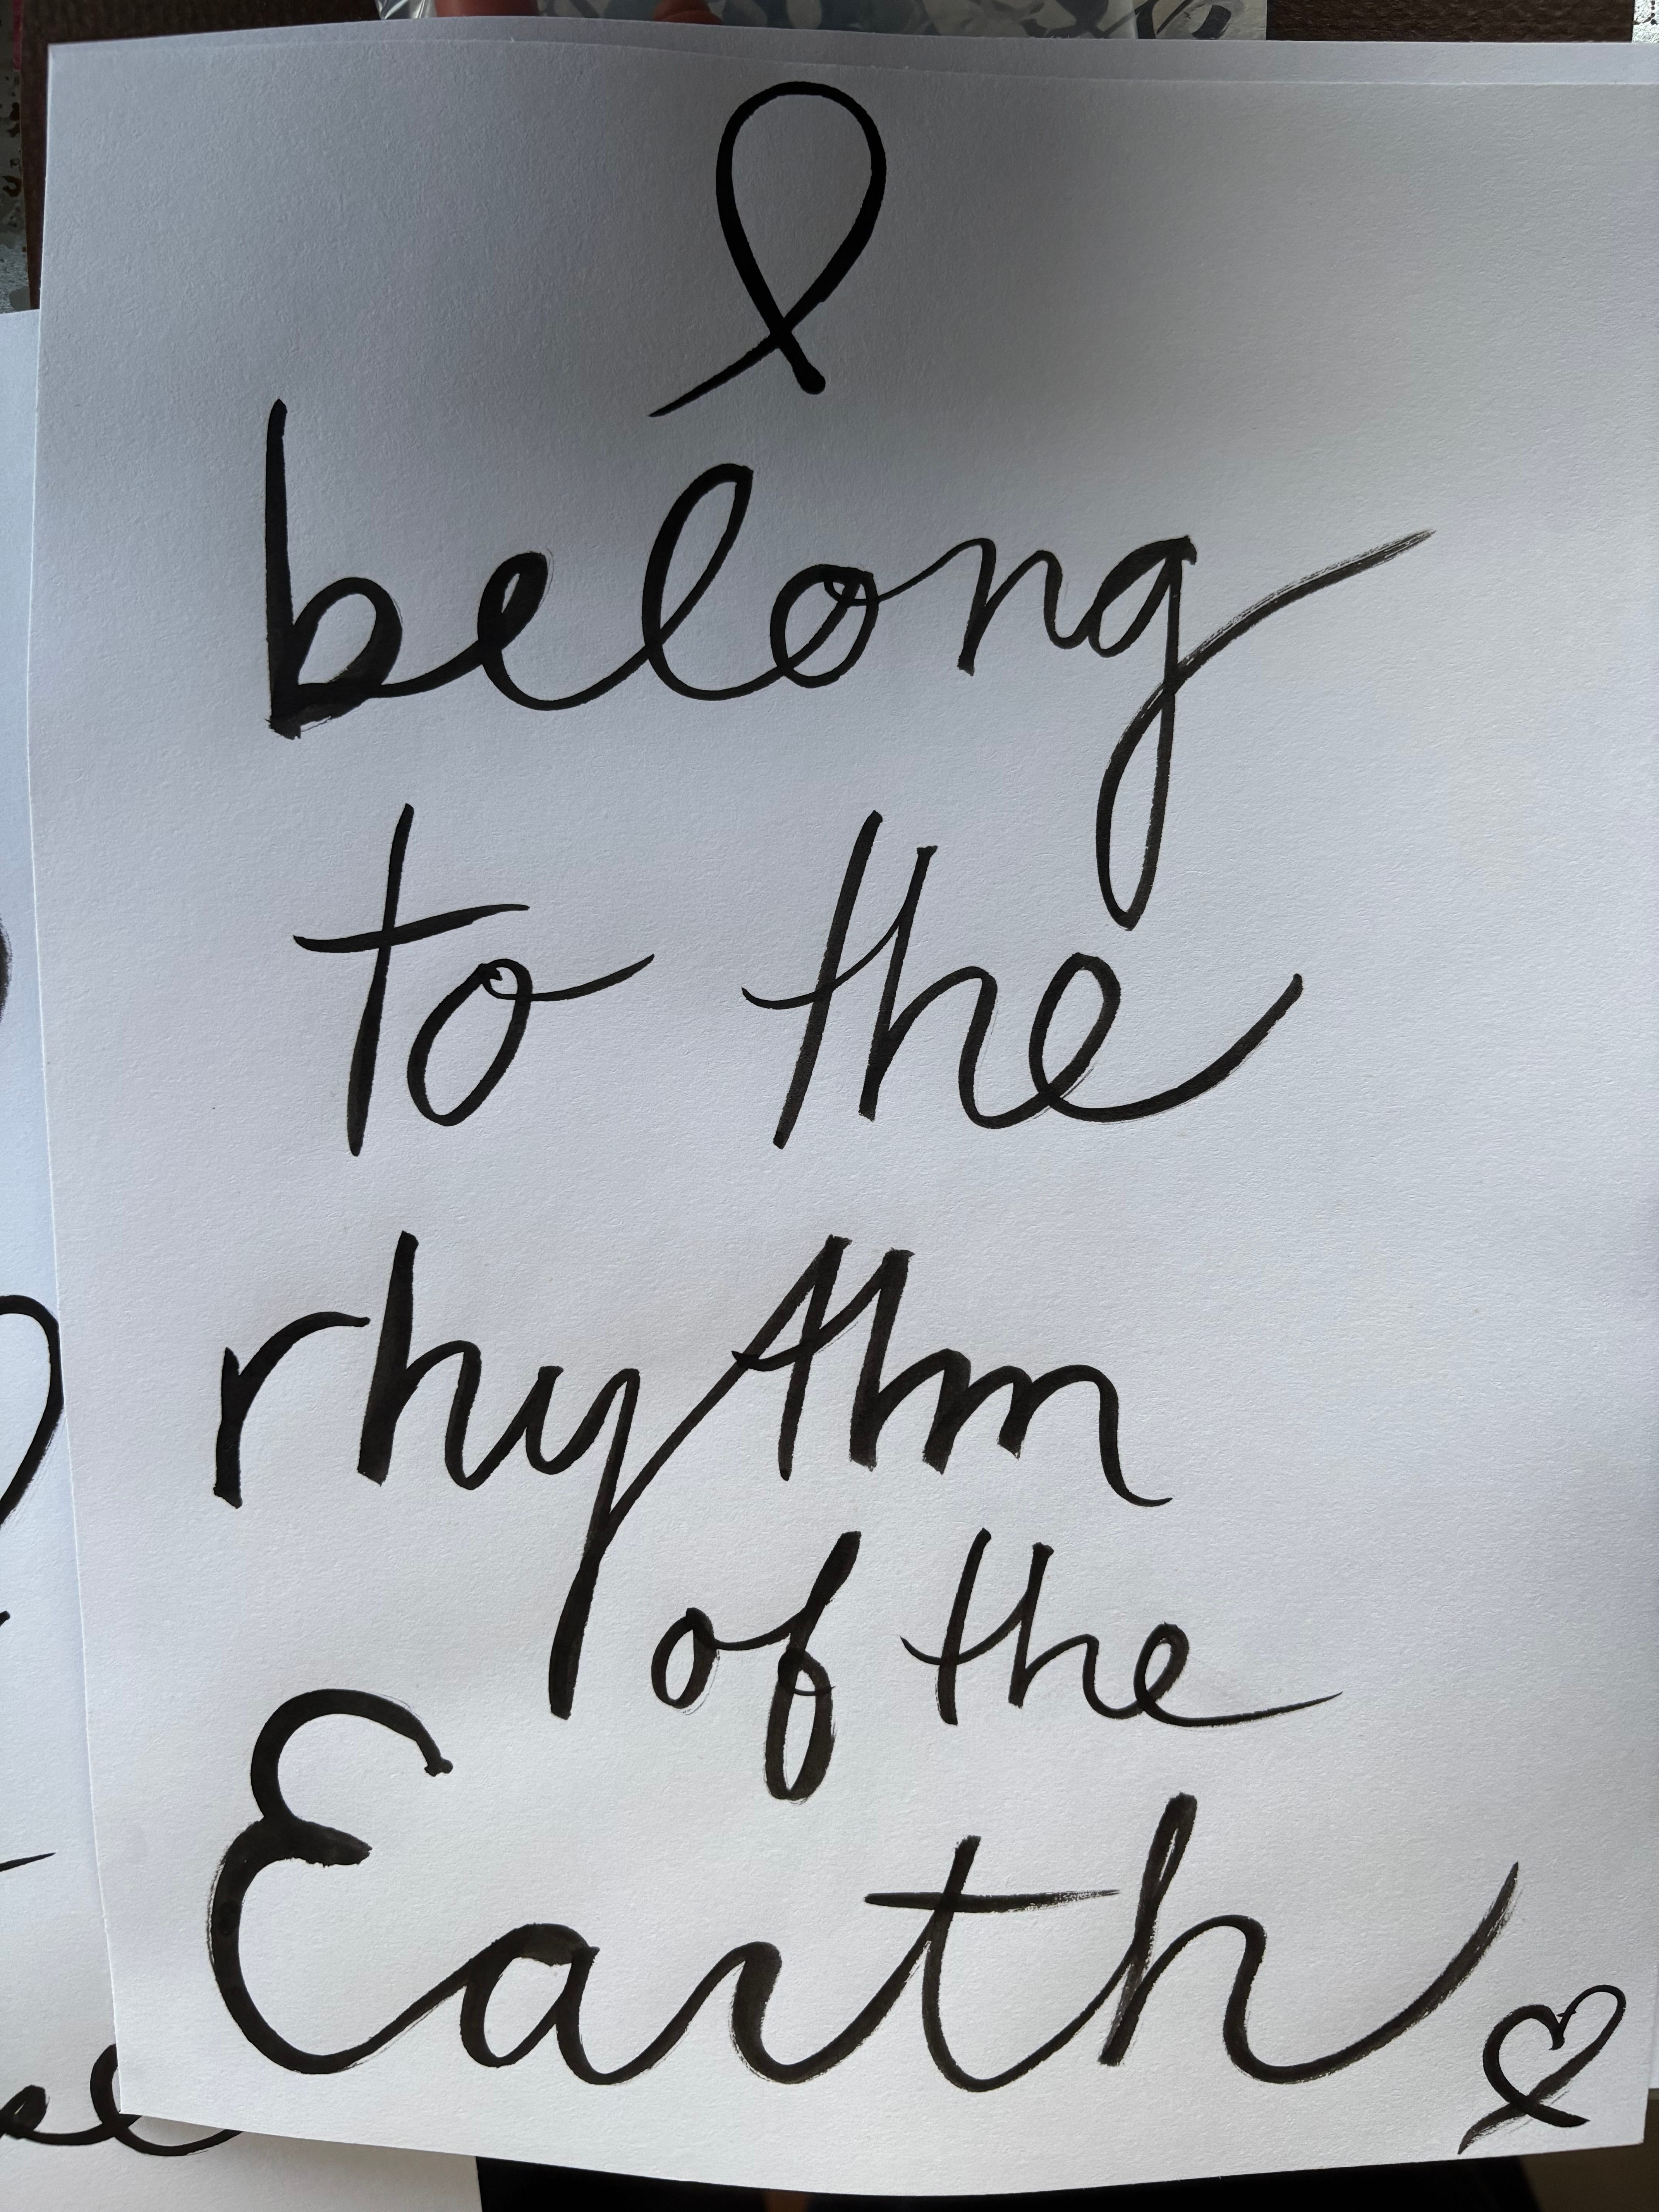 I
belong
to the
rhythm
of the
Earth